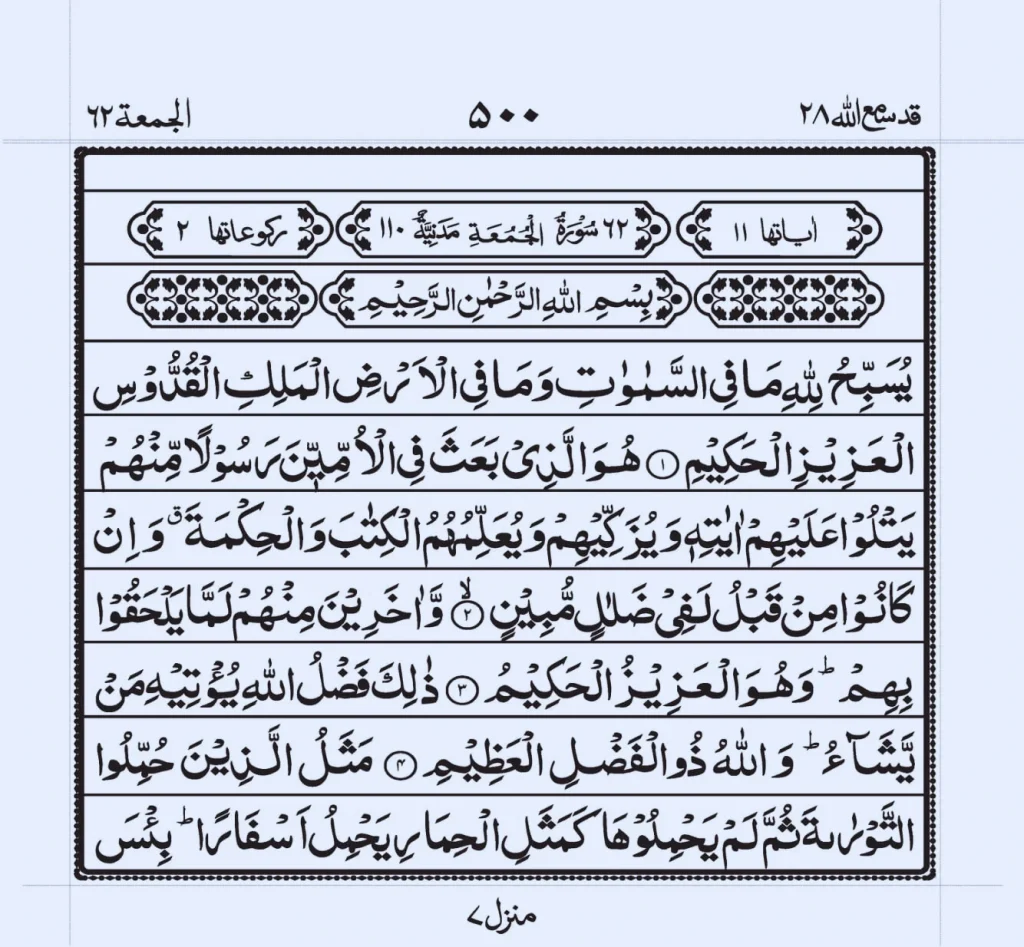 قد سمع الله ۲۸
۵۰۰
الجمعة ۶۲
اٰیاتها ۱۱
۶۲ سُوْرَةُ الْجُمُعَةِ مَدَنِیَّةٌ ۱۱۰
رکوعاتها ۲
بِسْمِ اللهِ الرَّحْمٰنِ الرَّحِیْمِ
یُسَبِّحُ لِلّٰهِ مَا فِی السَّمٰوٰتِ وَ مَا فِی الْاَرْضِ الْمَلِكِ الْقُدُّوْسِ
الْعَزِیْزِ الْحَكِیْمِ ۱ هُوَ الَّذِیْ بَعَثَ فِی الْاُمِّیّٖنَ رَسُوْلًا مِّنْهُمْ
یَتْلُوْا عَلَیْهِمْ اٰیٰتِهٖ وَ یُزَكِّیْهِمْ وَ یُعَلِّمُهُمُ الْكِتٰبَ وَ الْحِكْمَةَ ق وَ اِنْ
كَانُوْا مِنْ قَبْلُ لَفِیْ ضَلٰلٍ مُّبِیْنٍ ۲ۙ وَّ اٰخَرِیْنَ مِنْهُمْ لَمَّا یَلْحَقُوْا
بِهِمْ ؕ وَ هُوَ الْعَزِیْزُ الْحَكِیْمُ ۳ ذٰلِكَ فَضْلُ اللهِ یُؤْتِیْهِ مَنْ
یَّشَآءُ ؕ وَ اللهُ ذُو الْفَضْلِ الْعَظِیْمِ ۴ مَثَلُ الَّذِیْنَ حُمِّلُوا
التَّوْرٰىةَ ثُمَّ لَمْ یَحْمِلُوْهَا كَمَثَلِ الْحِمَارِ یَحْمِلُ اَسْفَارًا ؕ بِئْسَ
منزل ۷